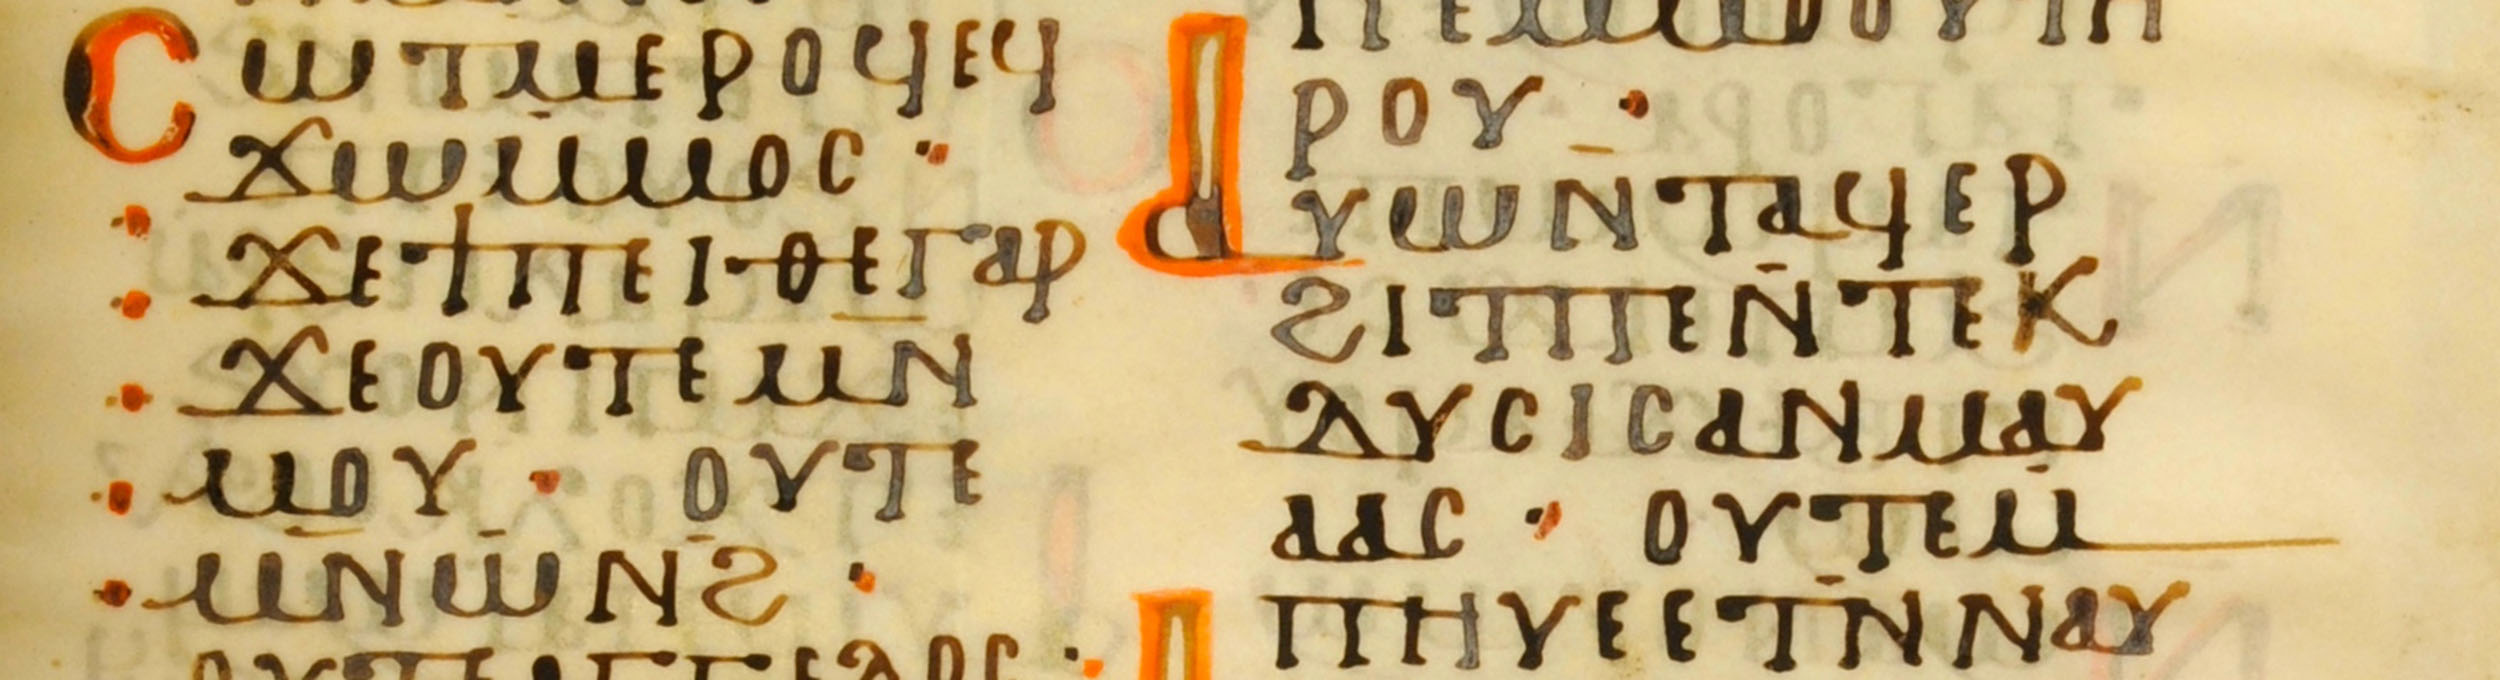 Ⲥⲱⲧⲙⲉⲣⲟϥⲉϥ
ϫⲱⲙ̄ⲙⲟⲥ ·
ϫⲉϯⲡⲉⲓⲑⲉⲅⲁⲣ
ϫⲉⲟⲩⲧⲉⲙⲛ̄
ⲙⲟⲩ · ⲟⲩⲧⲉ
ⲙⲛ̄ⲱⲛ̄ϩ̄ ·
ⲟⲩⲧⲉⲁⲅⲅⲉⲗⲟⲥ ·
ⲡⲉⲙⲙⲟⲩⲧⲏ
ⲣⲟⲩ ·
Ⲁⲩⲱⲛ̄ⲧⲁϥⲉⲣ
ϩⲓⲧⲡⲉⲛ̄ⲧⲉⲕ
ⲗⲩⲥⲓⲥⲁⲛⲙⲁⲩ
ⲁⲁⲥ · ⲟⲩⲧⲉⲙ̄
ⲡⲏⲩⲉⲉⲧⲛ̄ⲛⲁⲩ